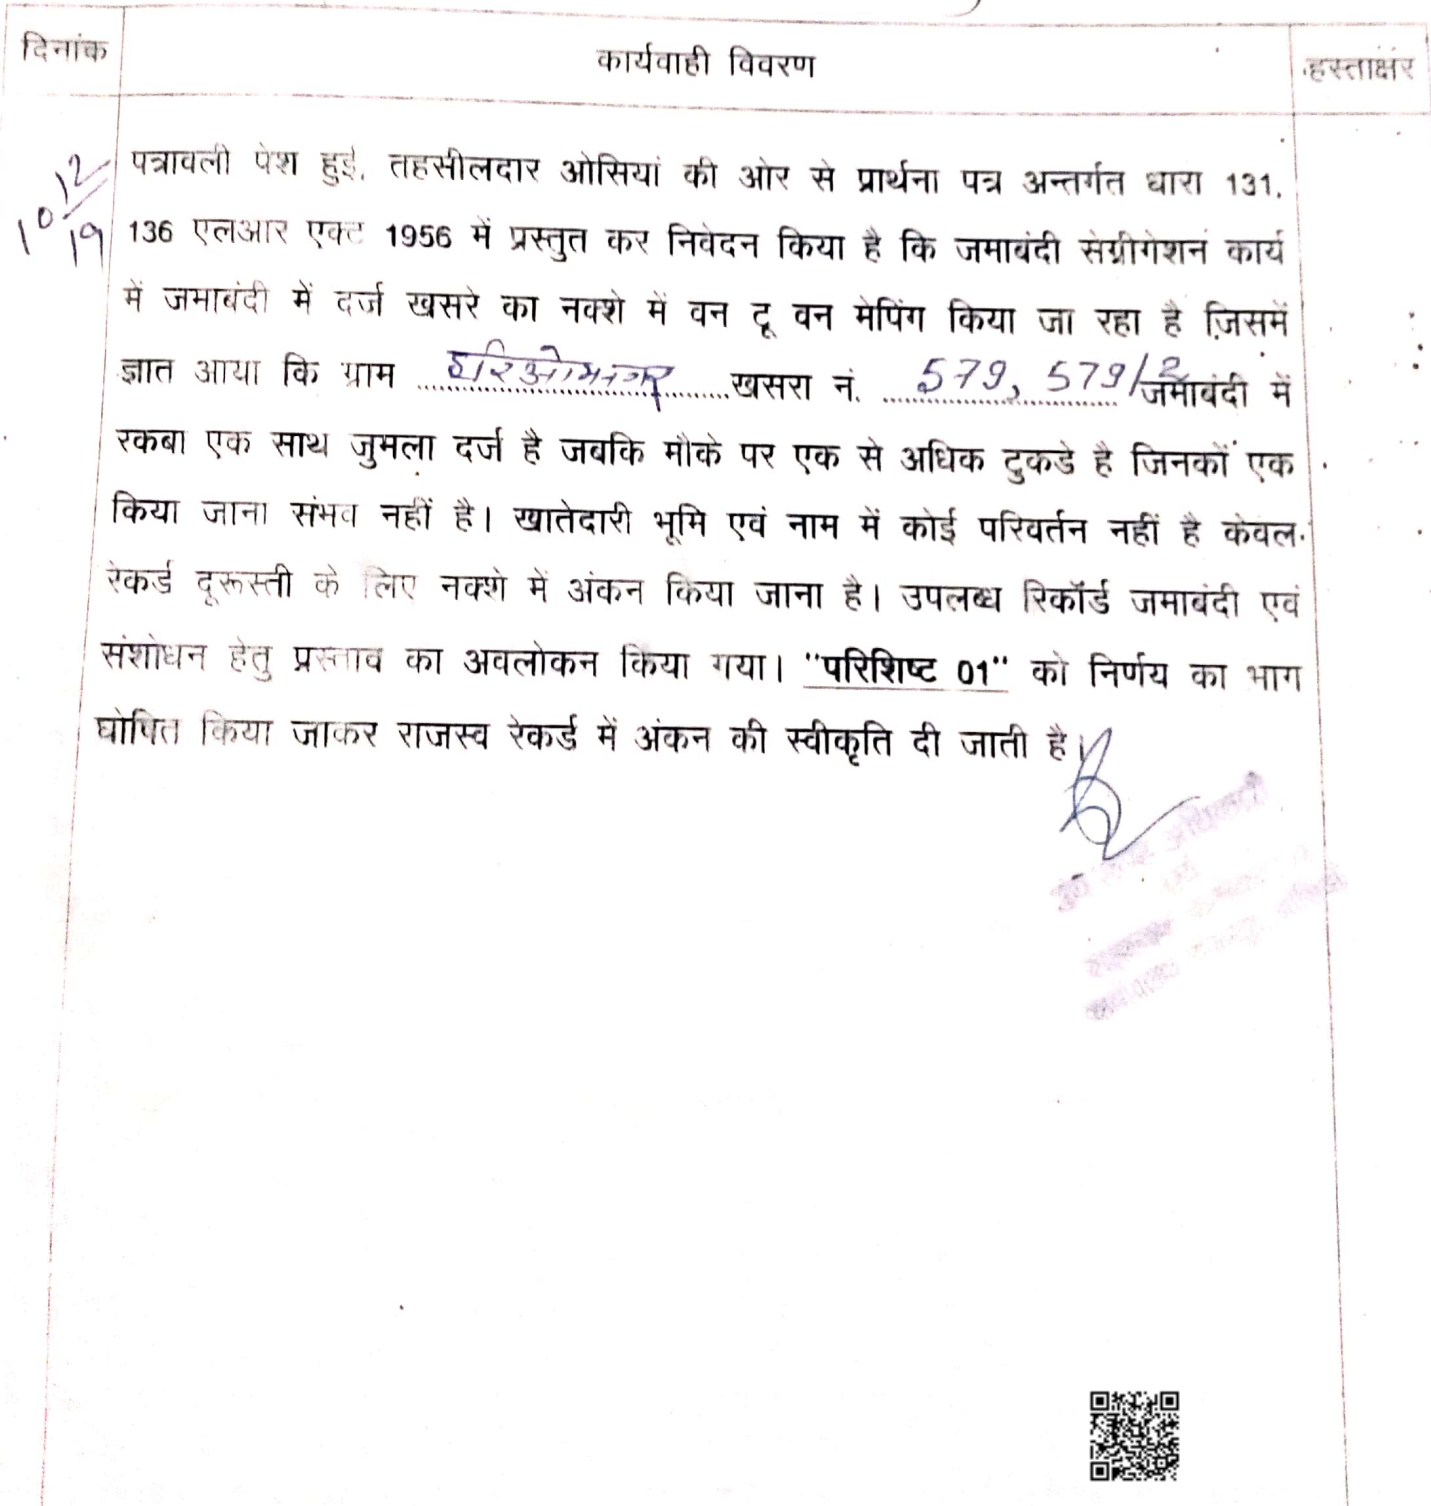 दिनांक कार्यवाही विवरण हस्ताक्षर
10/12/19
पत्रावली पेश हुई. तहसीलदार ओसियां की ओर से प्रार्थना पत्र अन्तर्गत धारा 131,
136 एलआर एक्ट 1956 में प्रस्तुत कर निवेदन किया है कि जमाबंदी सेग्रीगेशन कार्य
में जमाबंदी में दर्ज खसरे का नक्शे में वन टू वन मेपिंग किया जा रहा है जिसमें
ज्ञात आया कि ग्राम हरिओमनगर खसरा नं. 579, 579/2 जमाबंदी में
रकबा एक साथ जुमला दर्ज है जबकि मौके पर एक से अधिक टुकडे है जिनकों एक
किया जाना संभव नहीं है। खातेदारी भूमि एवं नाम में कोई परिवर्तन नहीं है केवल
रेकर्ड दूरूस्ती के लिए नक्शे में अंकन किया जाना है। उपलब्ध रिकॉर्ड जमाबंदी एवं
संशोधन हेतु प्रस्ताव का अवलोकन किया गया। "परिशिष्ट 01" को निर्णय का भाग
घोषित किया जाकर राजस्व रेकर्ड में अंकन की स्वीकृति दी जाती है।